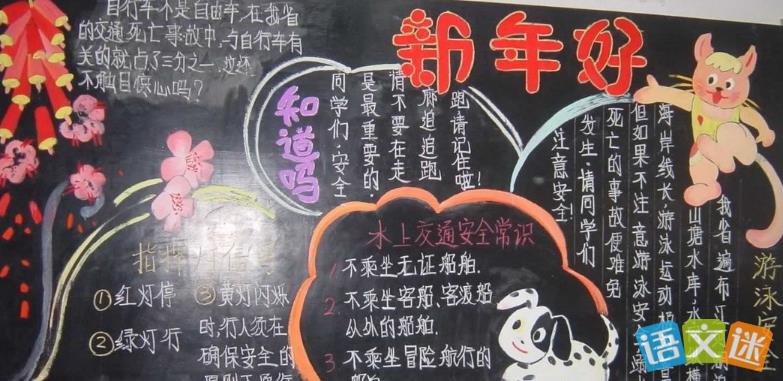 新年好
自行车不是自由车,在我省
的交通死亡事故中,与自行车有
关的就占了三分之一,这还
不触目惊心吗?
知道吗
同学们,安全
是最重要的,
情不要在走
廊追追跑
跑请记住啦!
指挥灯信号
①红灯停
②绿灯行
③黄灯闪烁
时,行人须在
确保安全的
水上交通安全常识
1. 不乘坐无证船舶.
2. 不乘坐客船、客渡船
以外的船舶.
3 不乘坐冒险航行的
船舶
游泳
我省遍布江
山塘水库,水
海岸线长,游泳运动
但如果不注意游泳安
死亡的事故便难免
发生,请同学们
注意安全!
语文迷